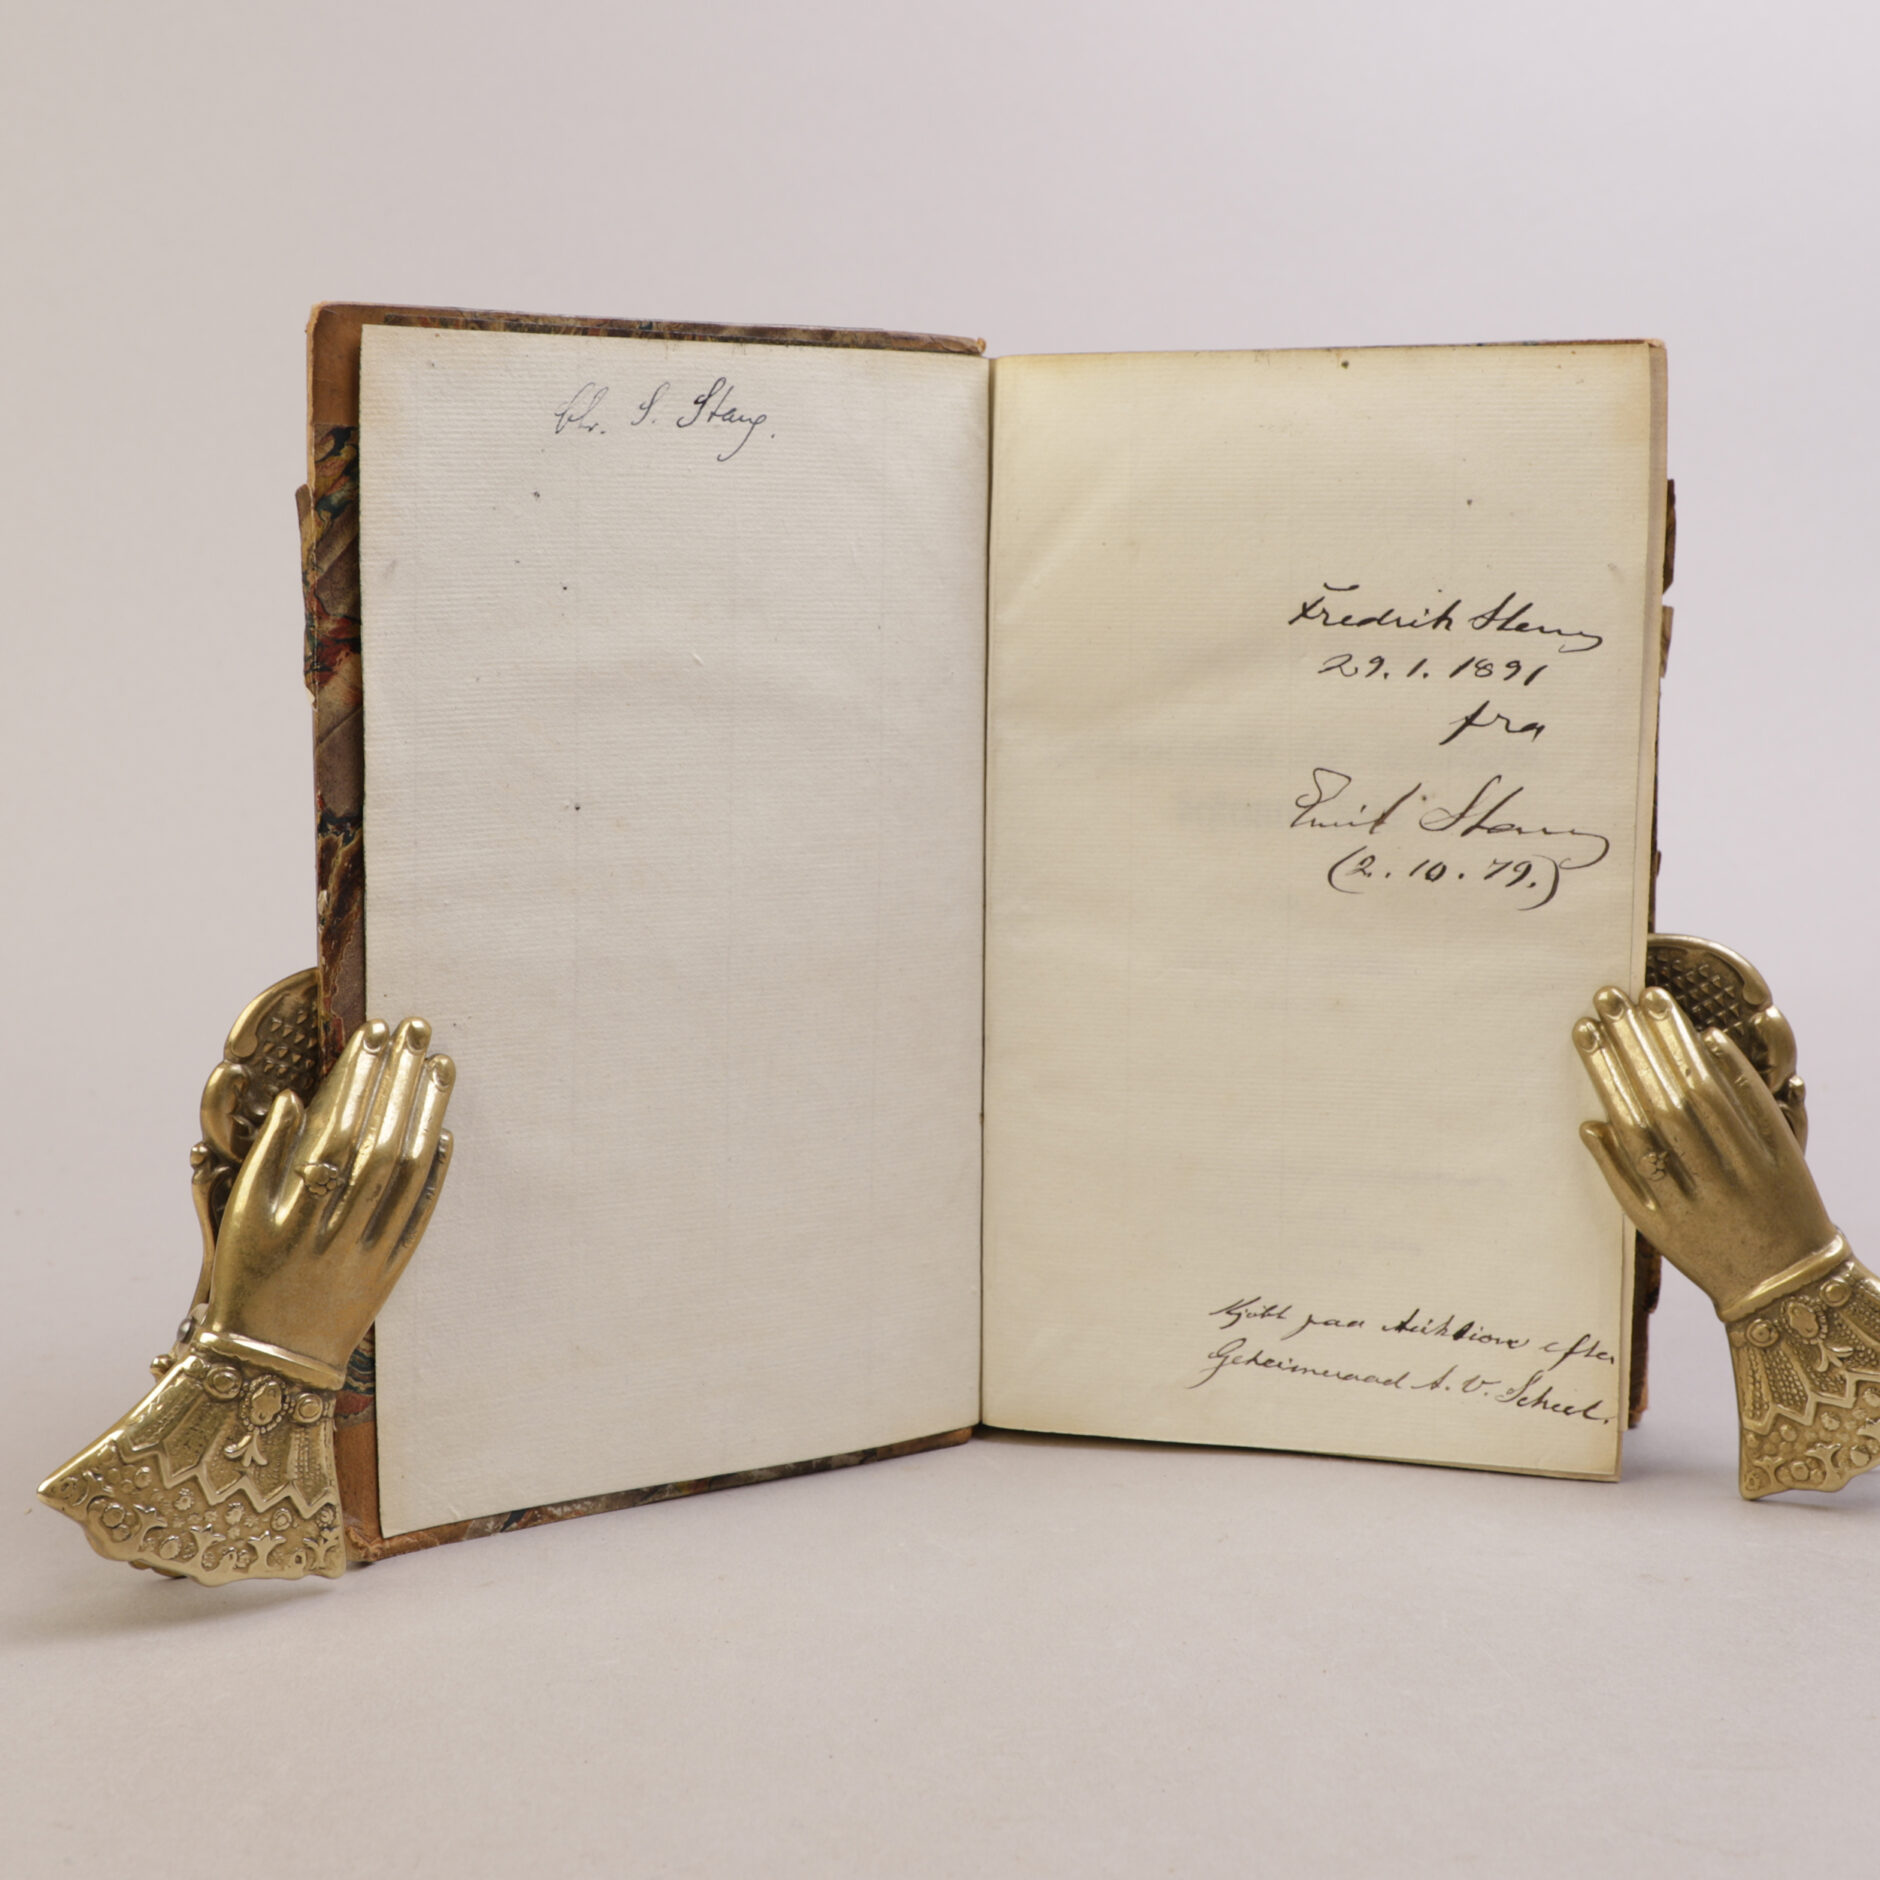 Chr. S. Stang.
Fredrik Stang
29.1.1891
fra
Emil Stang
(2.10.79.)
Kjöbt paa Auktion efter
Geheimeraad A. V. Scheel.